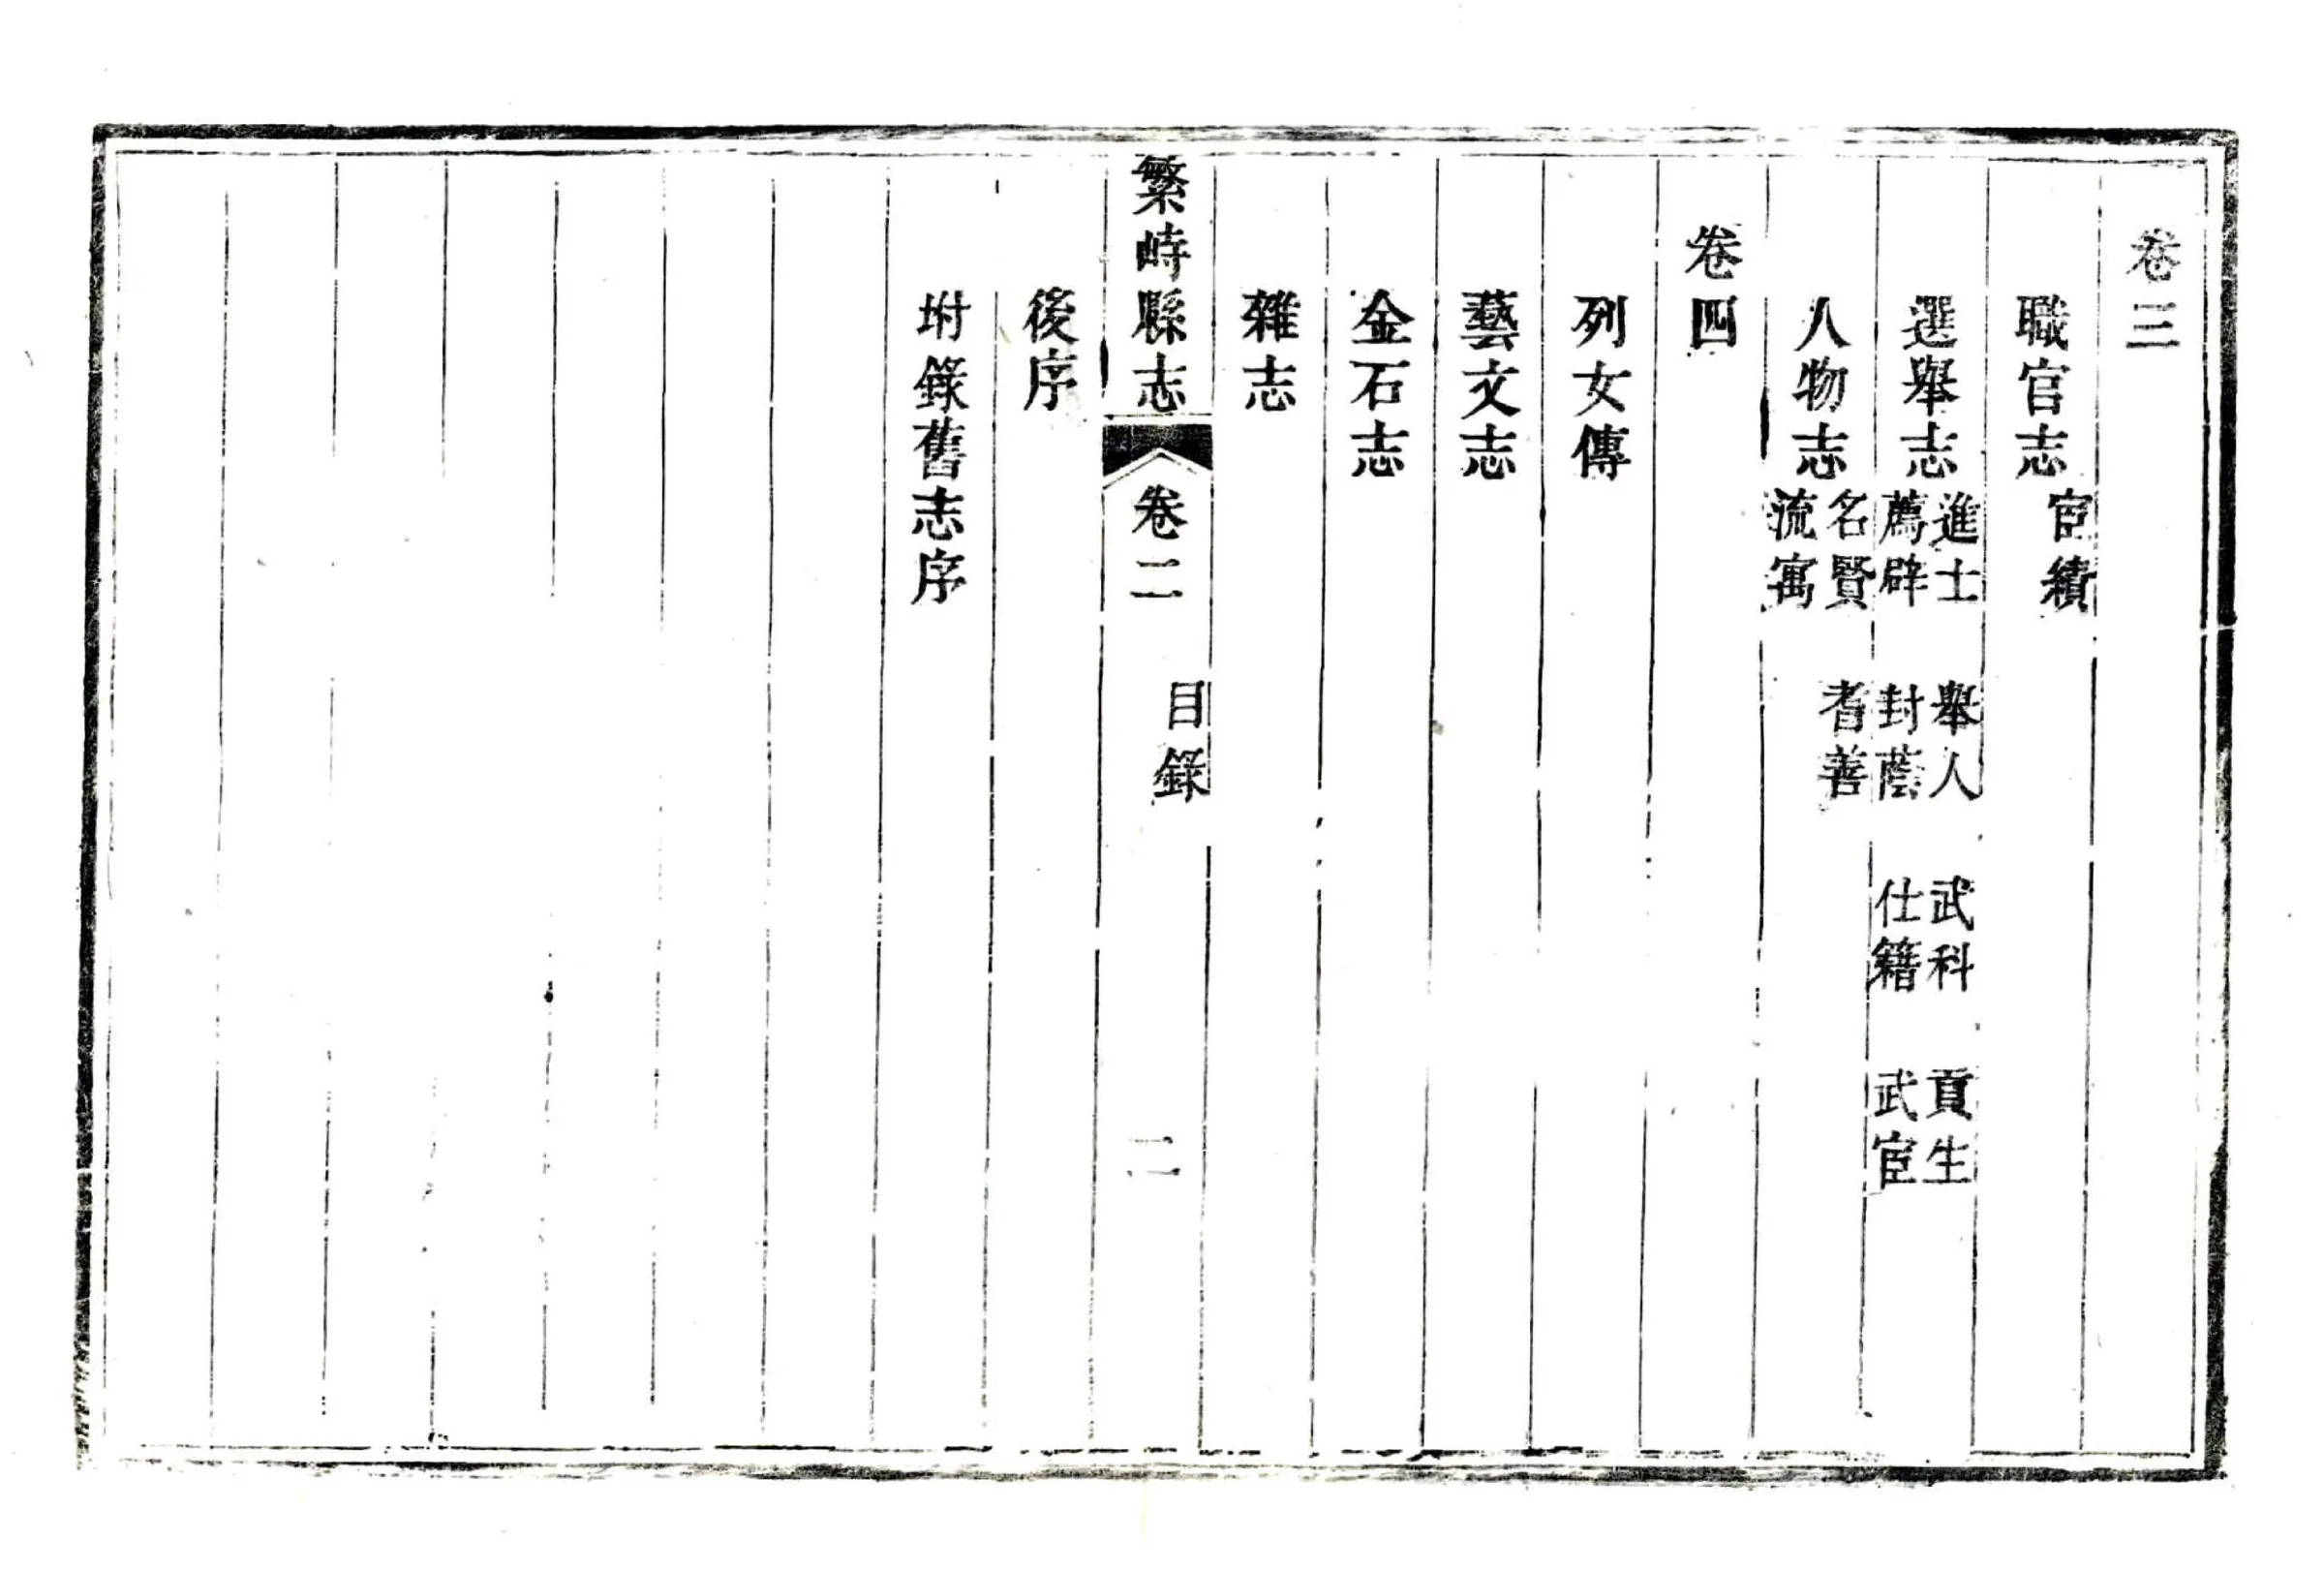 卷三
職官志 宦績
選舉志 進士 舉人 武科 貢生
薦辟 封蔭 仕籍 武宦
人物志 名賢 耆善
流寓
卷四
列女傳
藝文志
金石志
雜志
繁峙縣志 卷二 目錄 二
後序
坿錄舊志序